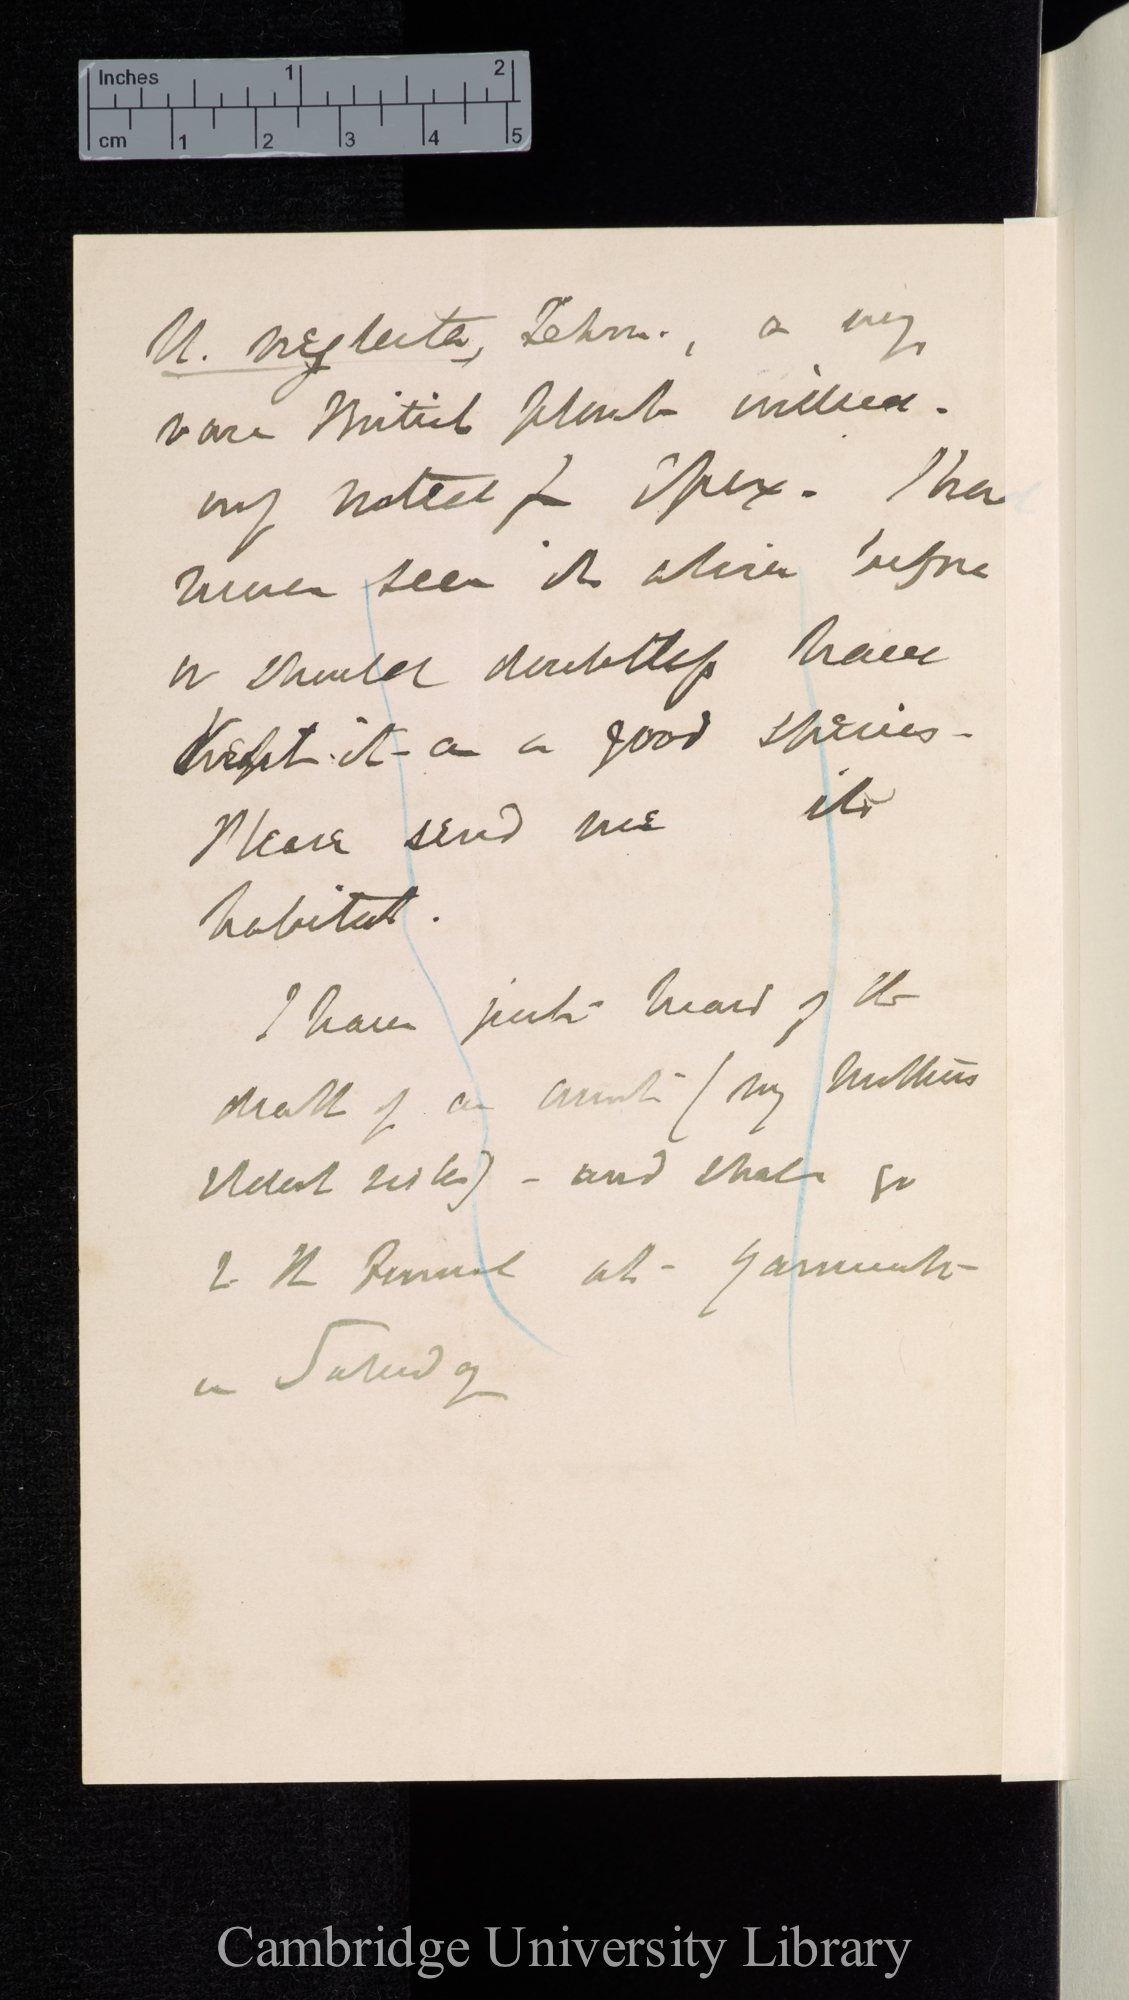 Inches 1 2
cm 1 2 3 4 5
U. neglecta, Lehm., a very
rare British plant indeed.
only noted f Epping. I had
never seen it alive before
or should doubtless have
kept it as a good species-
Please send me its
habitat.
I have just heard of the
death of an aunt (my mothers
eldest sister) - and shall go
to the funeral at Yarmouth
on Saturday
Cambridge University Library